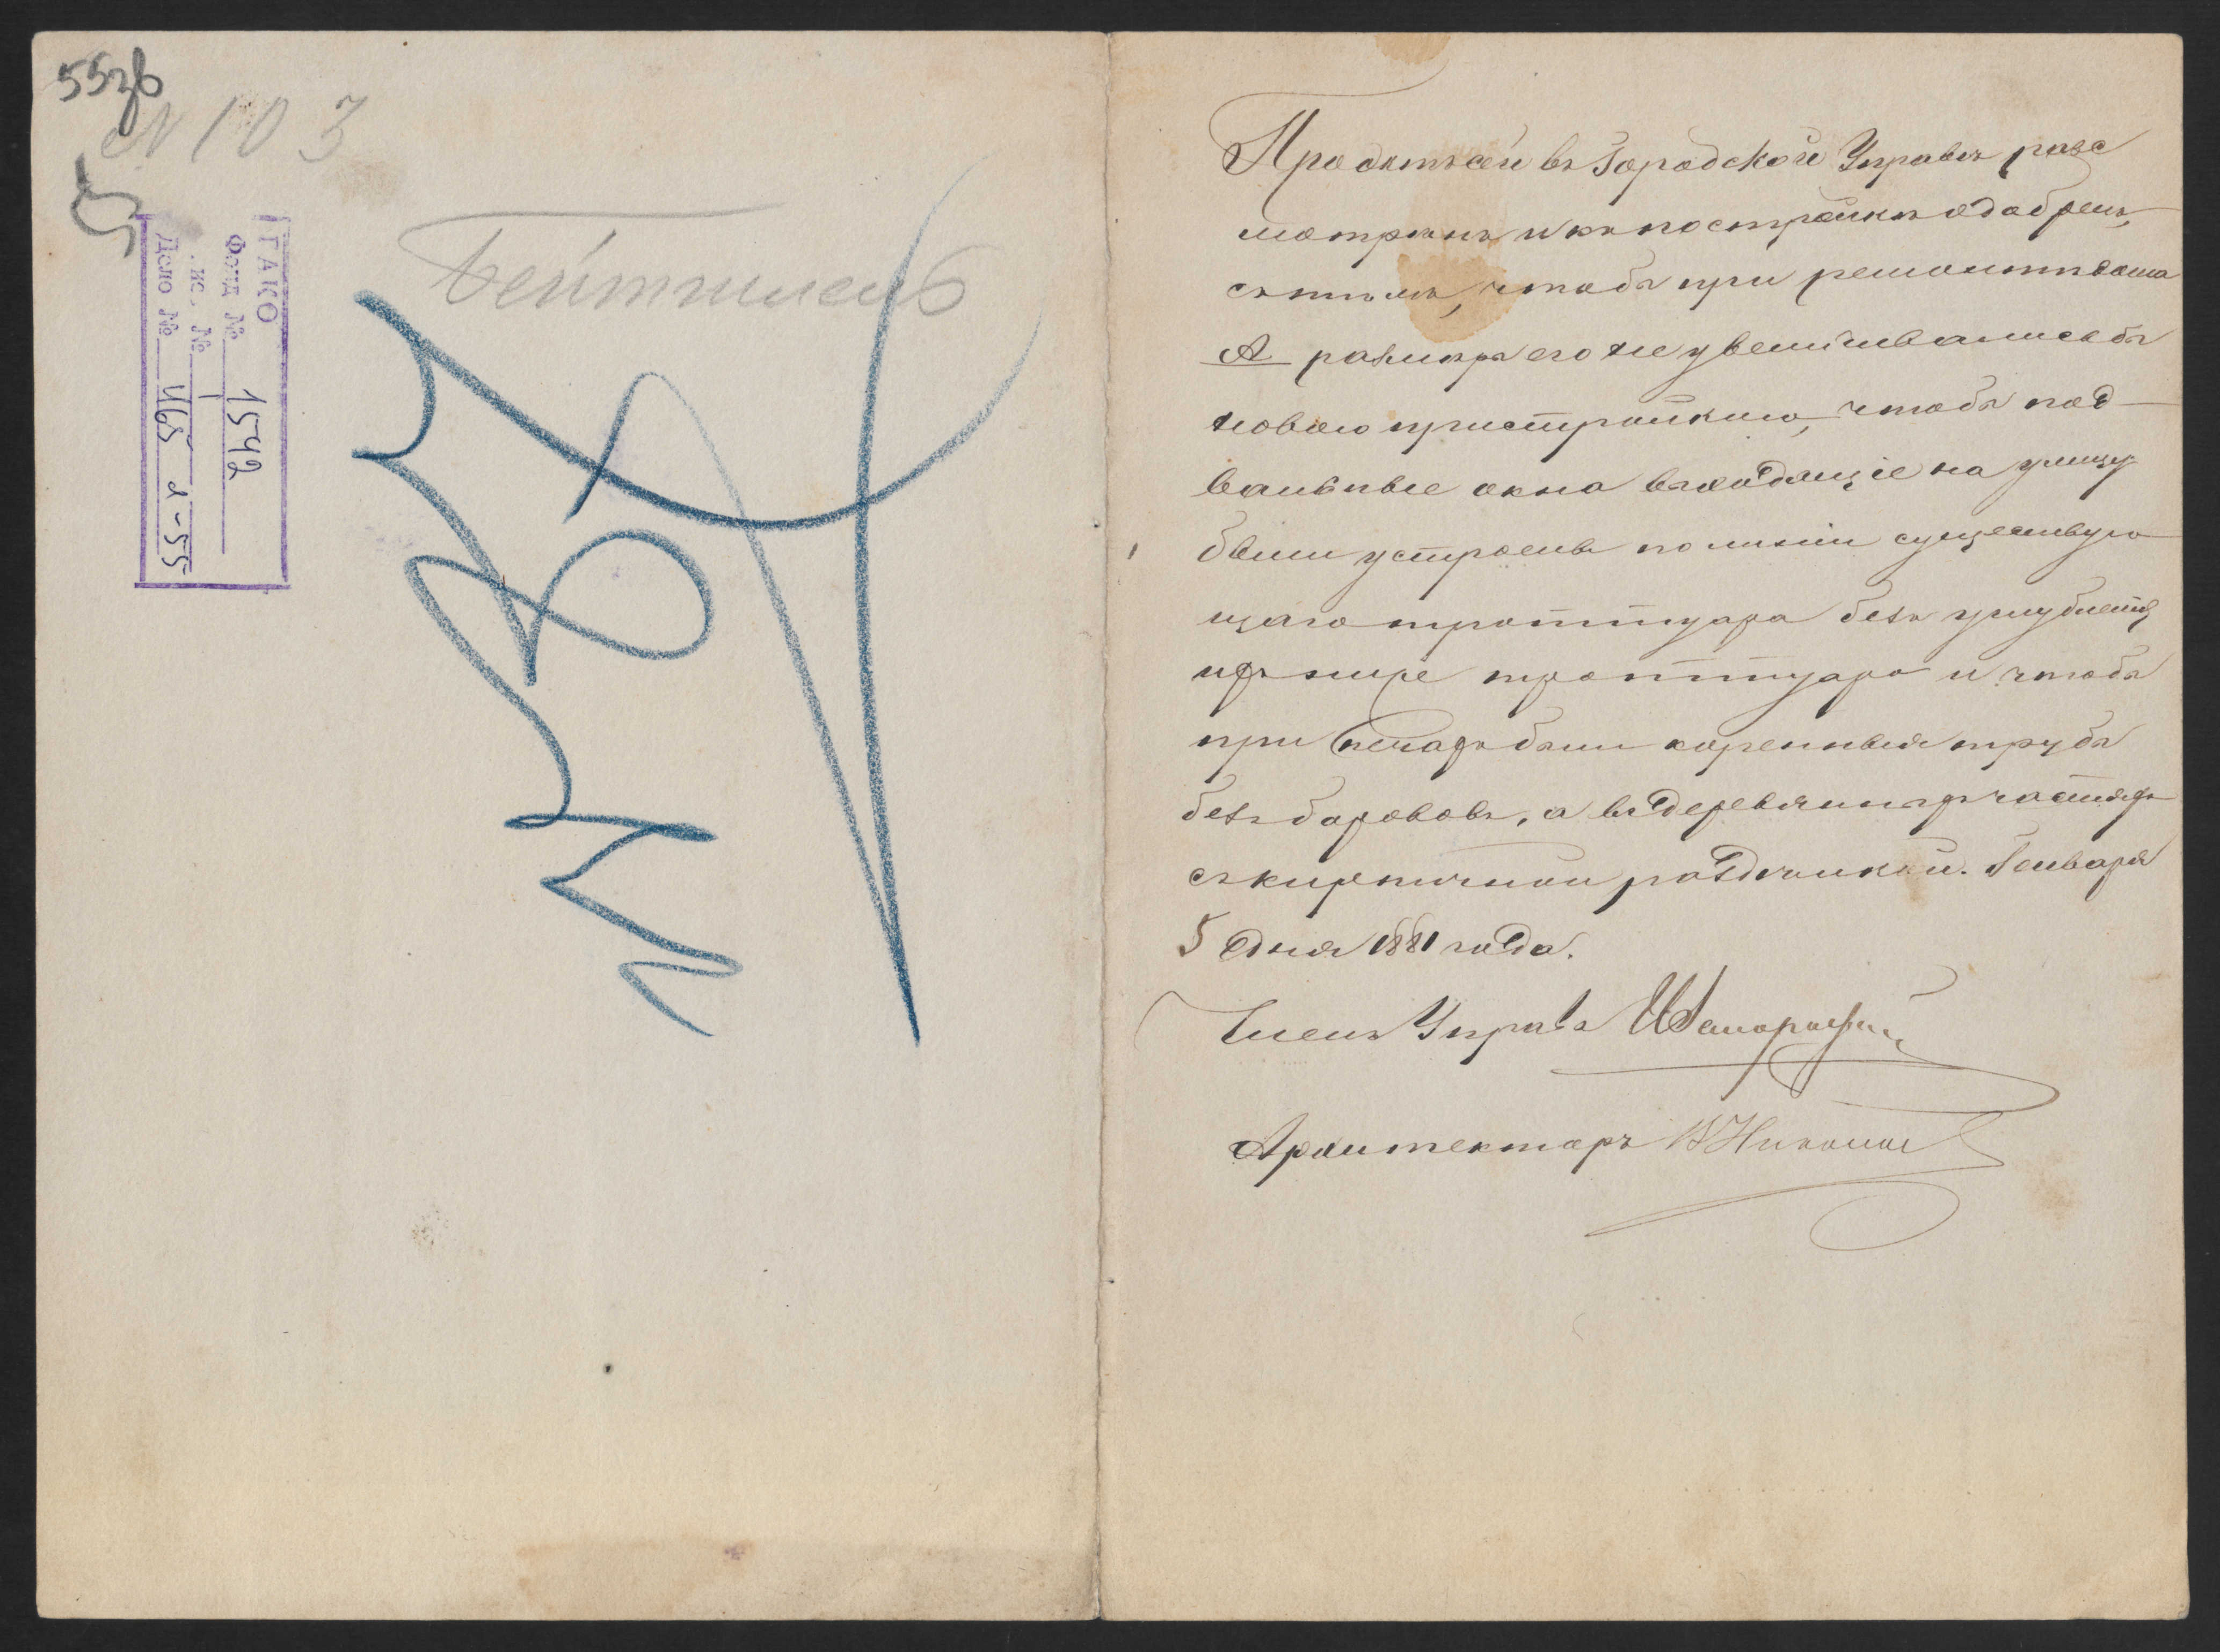 55об
№ 103
ГАКО
Фонд № 1542
№ 1
Дело № 465 л-55
Бейтмилеръ
Проэктъ сей въ Городской Управѣ разс
мотрѣнъ и къ постройкѣ одобренъ,
съ тѣмъ, чтобы при ремонтѣ дома
А размѣръ его не увеличивались бы
новою пристройкою, чтобы под-
вальные окна выходящіе на улицу
были устроены по линіи существую
щаго троттуара безъ углубленія
въ троттуара и чтобы
при печахъ были коренныя трубы
безъ борововъ, а въ деревянныхъ частяхъ
съ кирпичной раздѣлкой. Генваря
5 дня 1881 года.
Членъ Управы
Архитекторъ В Николаев